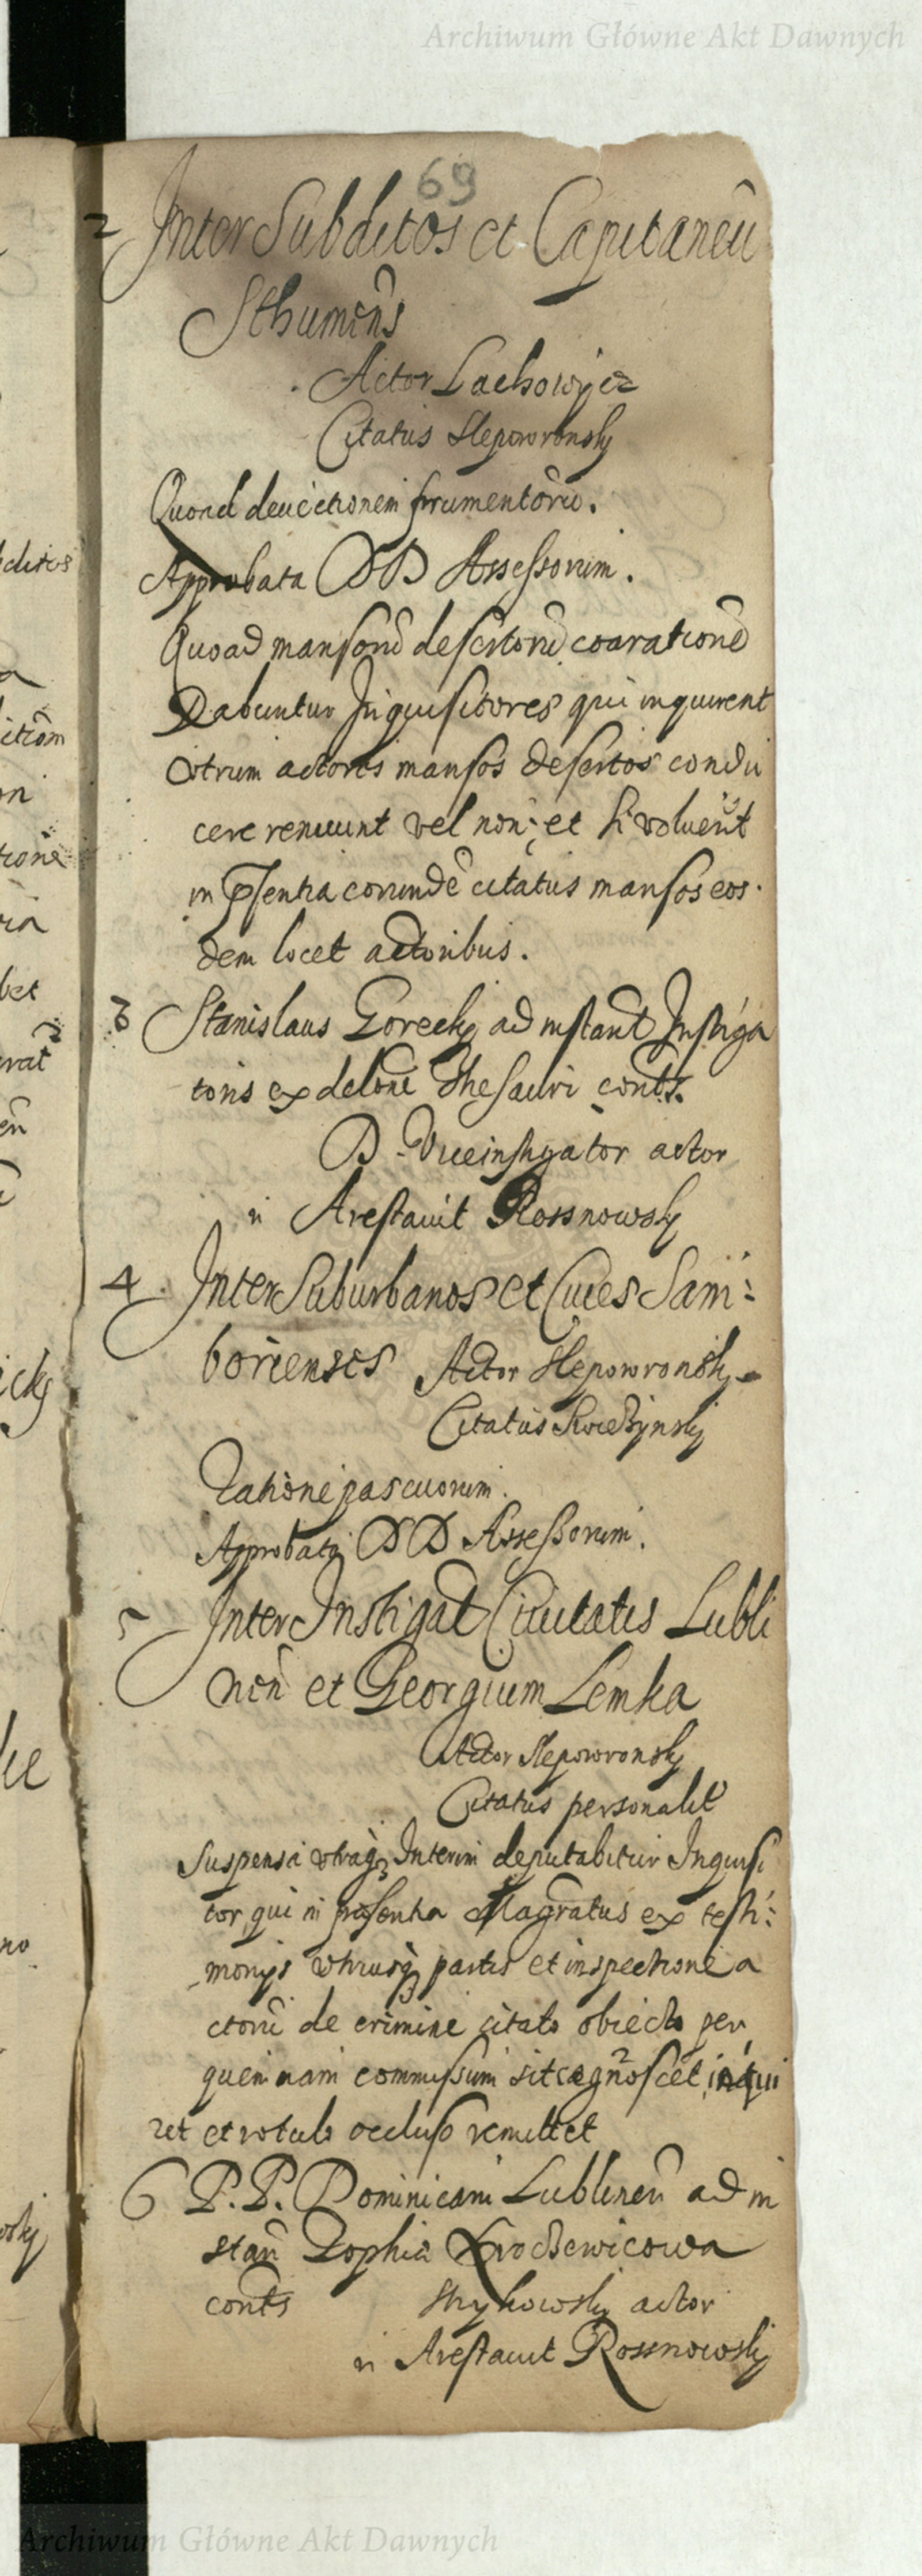 Archiwum Główne Akt Dawnych
69
2 Inter Subditos et Capitaneũ
Sthumens̃
Actor Lachowicz
Citatus Slepowronsky
Quoad deuectionem frumentorũ.
Approbata DD Assessorum.
Quoad mansorũ desertorũ coarationẽ
Dabuntur Inquisitores qui inquirent
Vtrum actores mansos desertos condu
cere renuunt vel non, et si voluerint
in p̃sentia eorundẽ citatus mansos eos
dem locet actoribus.
3 Stanislaus Gorecky ad instant Instiga
toris ex delõne Thesauri cont̃s.
D. Viceinstigator actor
n Arestauit Rossnowsky
4 Inter Suburbanos et Ciues Sam:
borienses Actor Slepowronsky
Citatus
Ratione pascuorum.
Approbata DD Assessorum.
5 Inter Instigat Ciuitatis Lubli
neñ et Georgium Lemka
Actor Slepowronsky
Citatus personalit̃
Suspensa vtraq3 Interim deputabitur Inquisi
tor qui in præsentia Magratus ex testi:
monijs vtriusq3 partis et inspectione a
ctorũ de crimine citato obiecto per
quem nam commissum sit cognoscet inqui
ret et rotulo occluso remittet
6 P. P. Dominicani Lublineñ ad in
stañ Zophia
cont̃s Strykowsky actor
n Arestauit Rossnowsky
Archiwum Główne Akt Dawnych